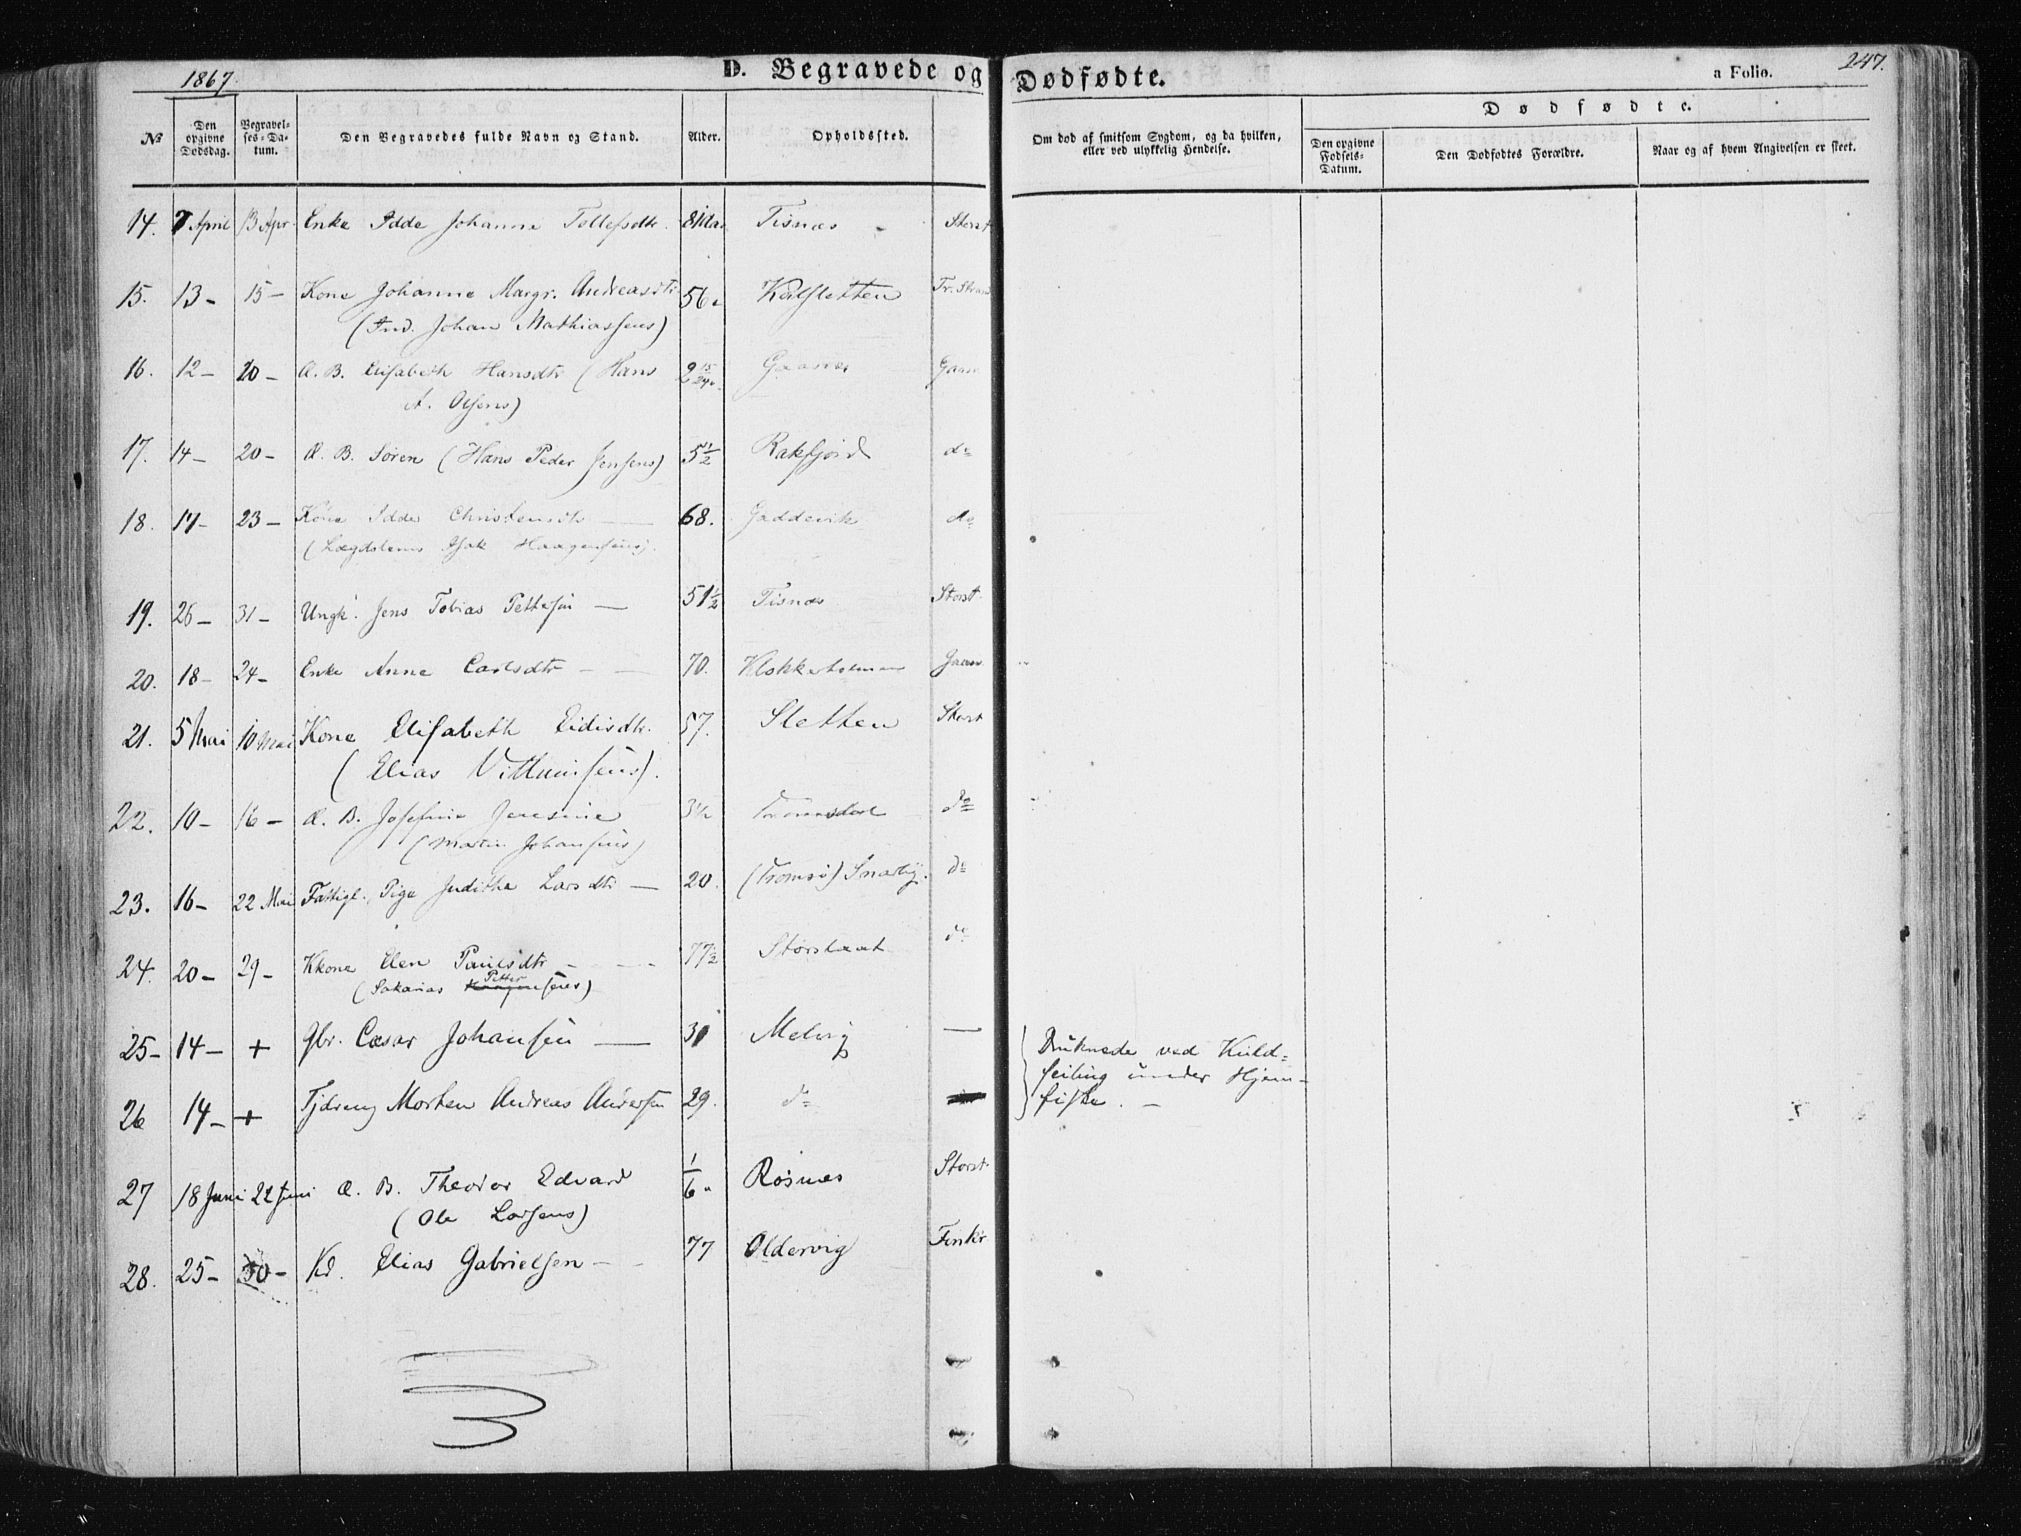 1867.
D. Begravede og Dødfødte.
a Folio. 247.
№
Den opgivne Dødsdag.
Begravelses-Datum.
Den Begravedes fulde Navn og Stand.
Alder.
Opholdssted.
Om død af smitsom Sygdom, og da hvilken, eller ved ulykkelig Hendelse.
Dødfødte.
Den opgivne Fødsels-Datum.
Den Dødfødtes Forældre.
Naar og af hvem Angivelsen er skeet.
14. 7 April 13 Apr. Enke Idda Johanne Tollefsdtr. 81 Tisnæs Storst
15. 13 – 15 – Kone Johanne Margr. Andreasdtr 56 Tr. Strand
(Ind. Johan Mathiassens)
16. 12 – 20 – Æ. B. Elisabeth Hansdtr (Hans 2 15/24 Gaasvær Gaasv
A. Olsens)
17. 14 – 20 – Æ. B. Søren (Hans Peder Jensens) 5½ Rakfjord do
18. 17 – 23 – Kone Idda Christensdtr 68. Gaddevik do
(Lægdslems Isak Haagensens).
19. 26 – 31 – Ungk. Jens Tobias Pettersen — 51½ Tisnæs Storst.
20. 18 – 24 – Enke Anne Carlsdtr – – 70. Klokkeholmen Gaasv
21. 5 Mai 10 Mai Kone Elisabeth Eidisdtr. 57. Sletten Storst
(Elias Villumsens).
22. 10 – 16 – Æ. B. Josefine Jensine do
(Martin Johansens)
23. 16 – 22 Mai Fattigl. Pige Judithe Larsdtr — 20. (Tromsø) Snarby. do
24. 20 – 29 – Kkone Elen Paulsdtr – – 77½ Storstaat do
Petter
(Sakarias Haagensens)
25 – 14 – + Gbr. Cæsar Johansen — 31 Melvig —
26 14 – + Tjdreng Morten Andreas Andersen 29. do
Druknede ved Kuld-
seiling under Hjem-
fiske. –
27 18 Juni 22 Juni Æ. B. Theodor Edvard 1/6 Rosnæs Storst
(Ole Larsens)
28. 25 – 30 – Kd. Elias Gabrielsen – – 77 Oldervig Finkr